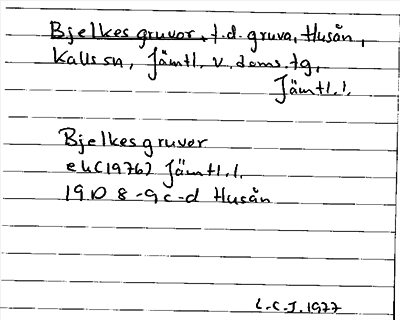 Bjelkes gruvor, f.d. gruva, Husån,
Kalls sn, Jämtl. v. doms. tg,
Jämtl. l.
Bjelkes gruvor
ek (1976) Jämtl. l.
19 D 8-9 c-d Husån
L.C.J. 1977